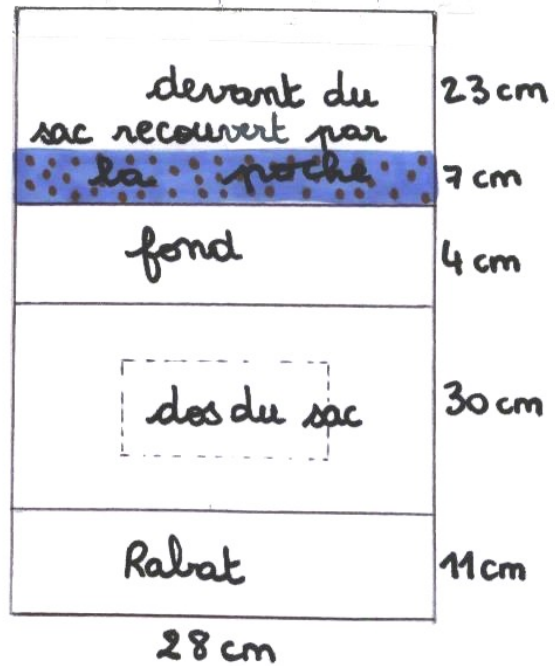 devant du
23 cm
sac recouvert par
la poche
7 cm
fond
4 cm
dos du sac
30 cm
Rabat
11 cm
28 cm